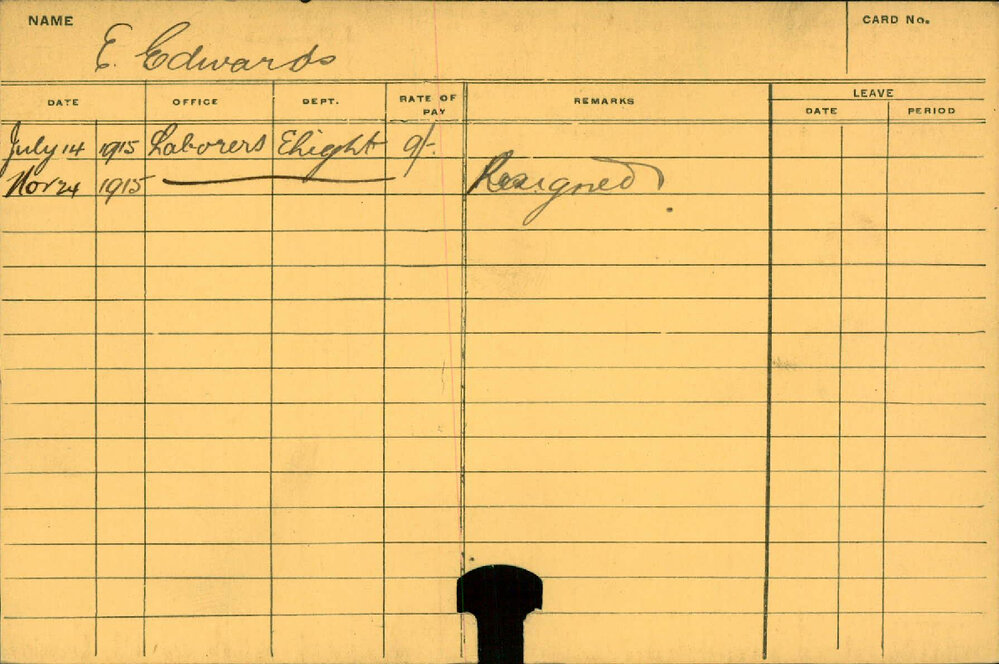 NAME E. Edwards CARD No.
DATE OFFICE DEPT. RATE OF PAY REMARKS LEAVE
DATE PERIOD
July 14 1915 Laborers Elight 9/-
Nov 24 1915 Resigned